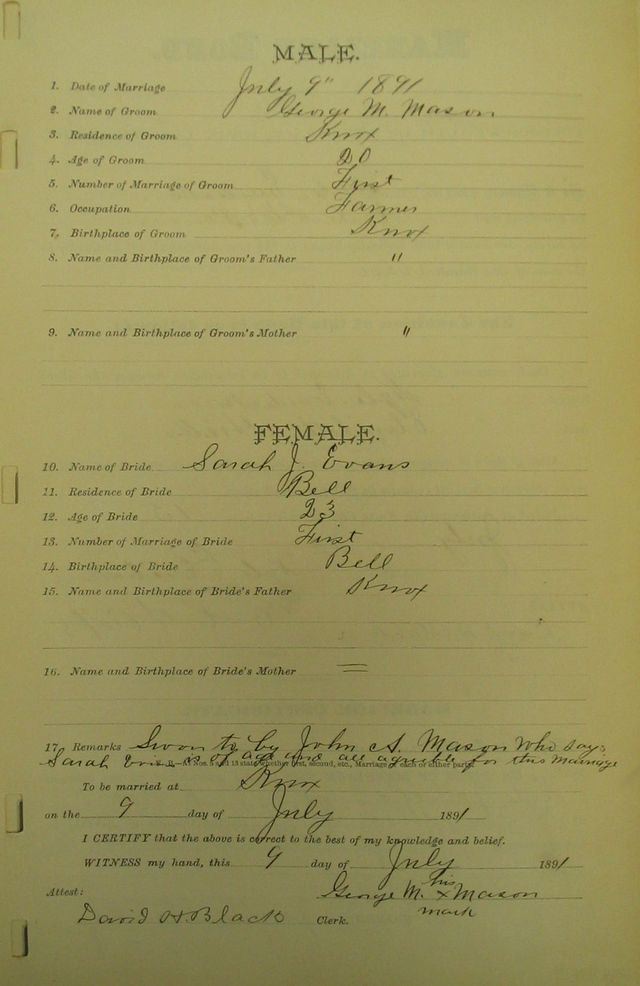 MALE.
1. Date of Marriage July 9" 1891
2. Name of Groom George M. Mason
3. Residence of Groom Knox
4. Age of Groom 20
5. Number of Marriage of Groom First
6. Occupation Farmer
7. Birthplace of Groom Knox
8. Name and Birthplace of Groom's Father "
9. Name and Birthplace of Groom's Mother "
FEMALE.
10. Name of Bride Sarah J. Evans
11. Residence of Bride Bell
12. Age of Bride 23
13. Number of Marriage of Bride First
14. Birthplace of Bride Bell
15. Name and Birthplace of Bride's Father Knox
16. Name and Birthplace of Bride's Mother =
17. Remarks Sworn to by John A. Mason who says
Sarah Evans is of age and all agreeable for this marriage
5 and 13 state whether first, second, etc., Marriage of each or either party.
To be married at Knox
on the 9 day of July 1891
I CERTIFY that the above is correct to the best of my knowledge and belief.
WITNESS my hand, this 9 day of July 1891
his
George M. x Mason
mark
Attest:
David H. Black Clerk.